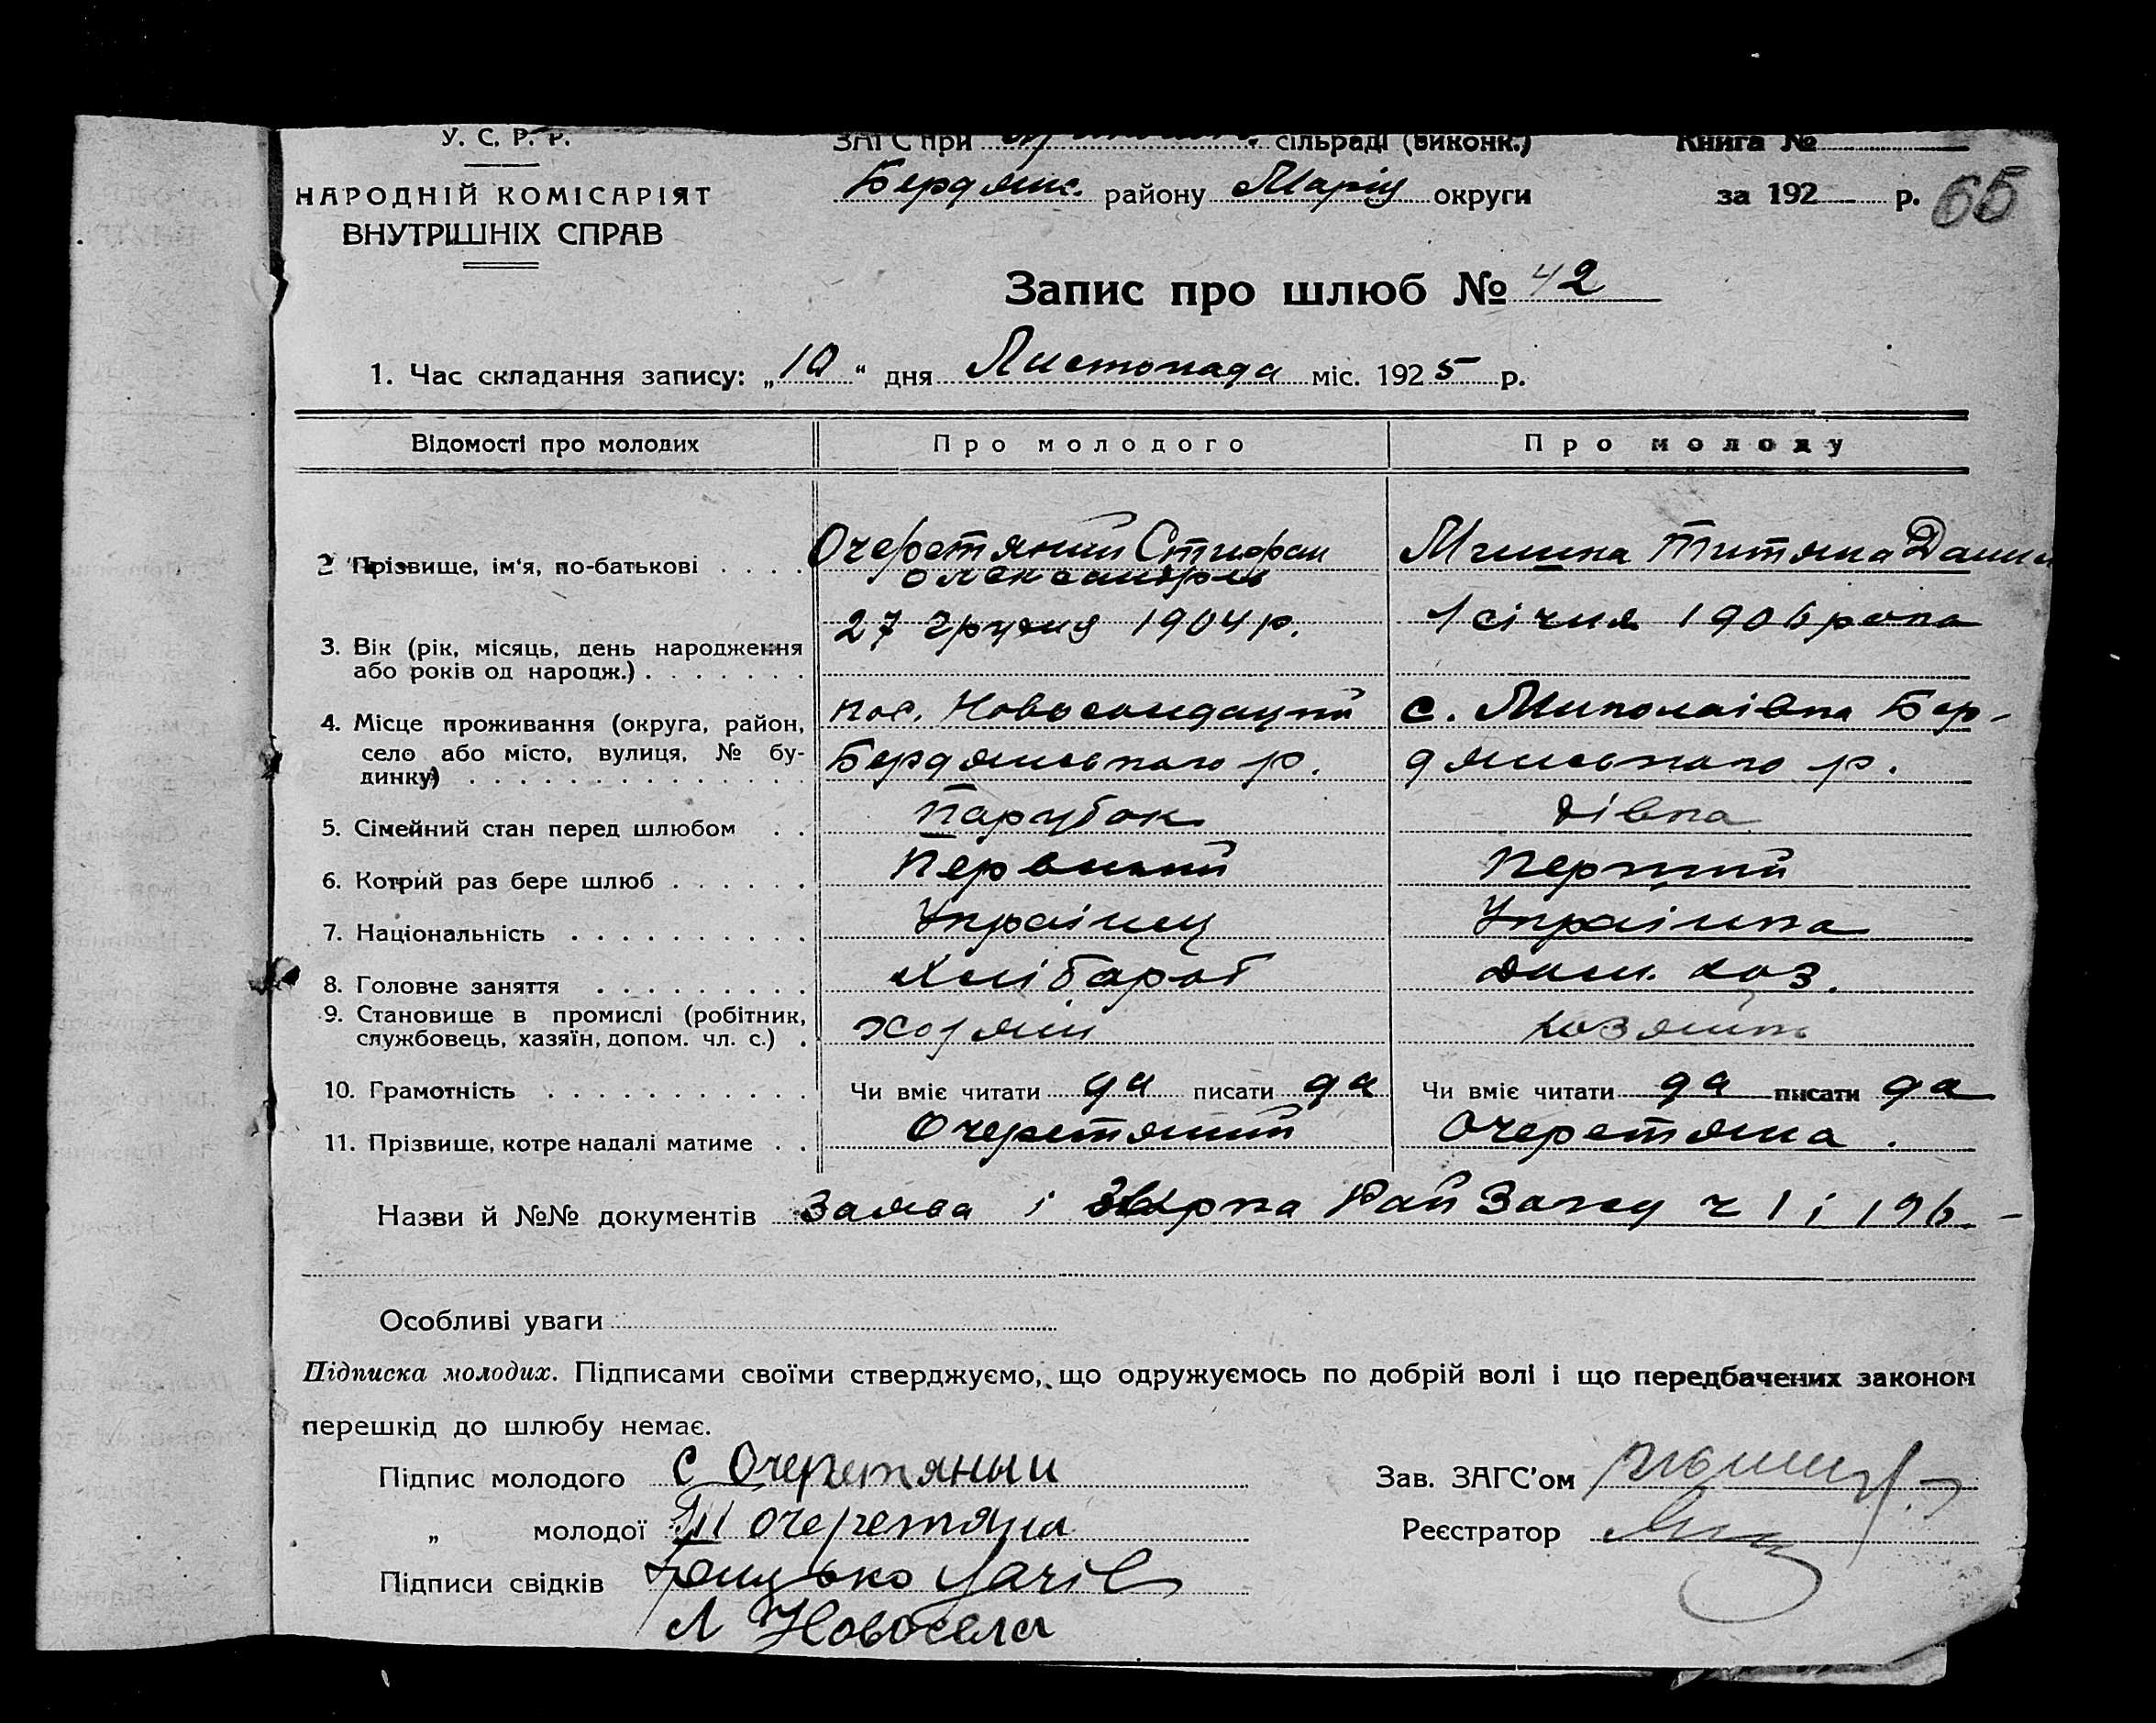 У. С. Р. Р.
ЗАГС при сільраді (виконк.)
Книга №
НАРОДНІЙ КОМІСАРІЯТ
ВНУТРІШНІХ СПРАВ
Бердянс. району Маріу округи
за 192 р. 65
Запис про шлюб № 42
1. Час складання запису: „10“ дня Листопада міс. 1925 р.
Відомості про молодих
Про молодого
Про молоду
2 Прізвище, ім'я, по-батькові
Очеретяний Стифан
Олександров
Титяна Данил
3. Вік (рік, місяць, день народження
або років од народж.)
27 грудня 1904 р.
1 січня 1906 рока
4. Місце проживання (округа, район,
село або місто, вулиця, № бу-
динку)
пос.
Бердянського р.
с. Миколаівка Бер-
дянського р.
5. Сімейний стан перед шлюбом
Парубок
дівка
6. Котрий раз бере шлюб
Первший
Перший
7. Національність
Украінец
Украінка
8. Головне заняття
Хлібароб
дом. хоз.
9. Становище в промислі (робітник,
службовець, хазяїн, допом. чл. с.)
хозяін
хозяйка
10. Грамотність
Чи вміє читати да писати да
Чи вміє читати да писати да
11. Прізвище, котре надалі матиме
Очеретяний
Очеретяна.
Назви й №№ документів Заява і Рай ч 1 і 196. -
Особливі уваги
Підписка молодих. Підписами своїми стверджуємо, що одружуємось по добрій волі і що передбачених законом
перешкід до шлюбу немає.
Підпис молодого С Очеретяный
Зав. ЗАГС'ом
„ молодої Т Очеретяна
Реєстратор
Підписи свідків
Л Новосела